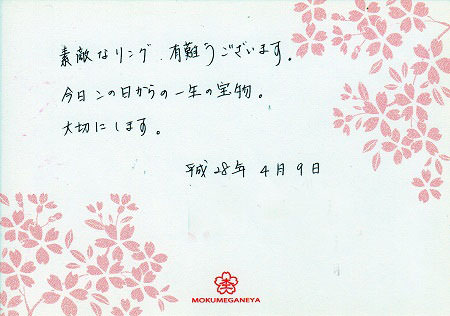 素敵なリング、有難うございます。
今日この日からの一生の宝物。
大切にします。
平成28年 4月9日
MOKUMEGANEYA